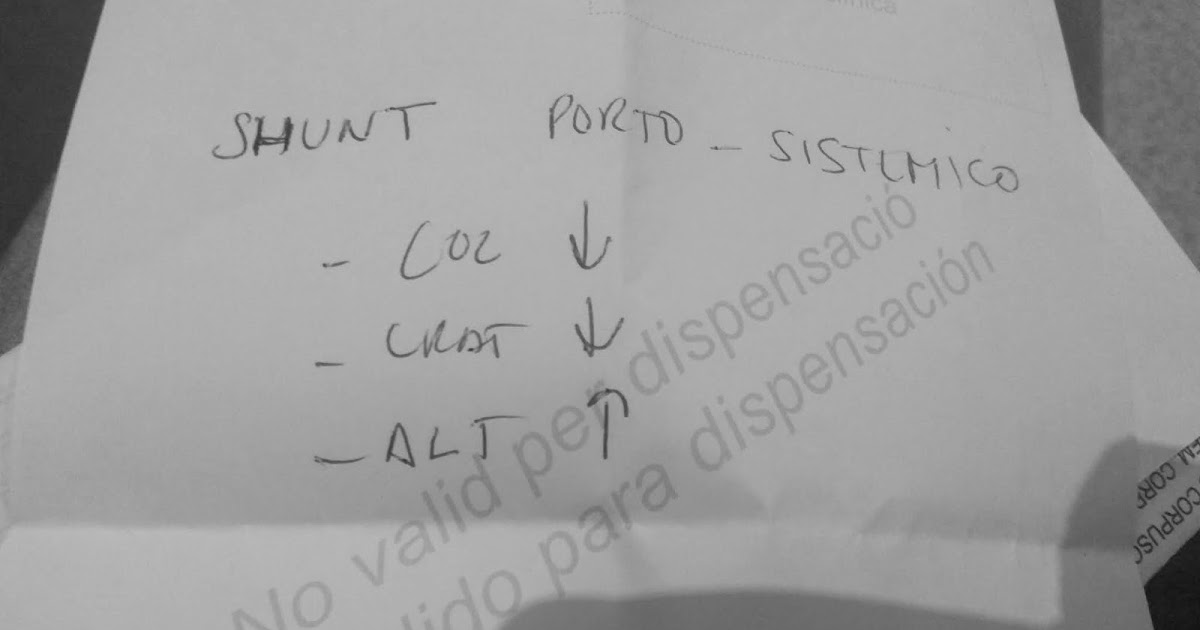 SHUNT PORTO - SISTEMICO
- CO2 ↓
- CRAT ↓
- ALT ↑
No valid per dispensació
lido para dispensación
EM CORP
CORPUSC